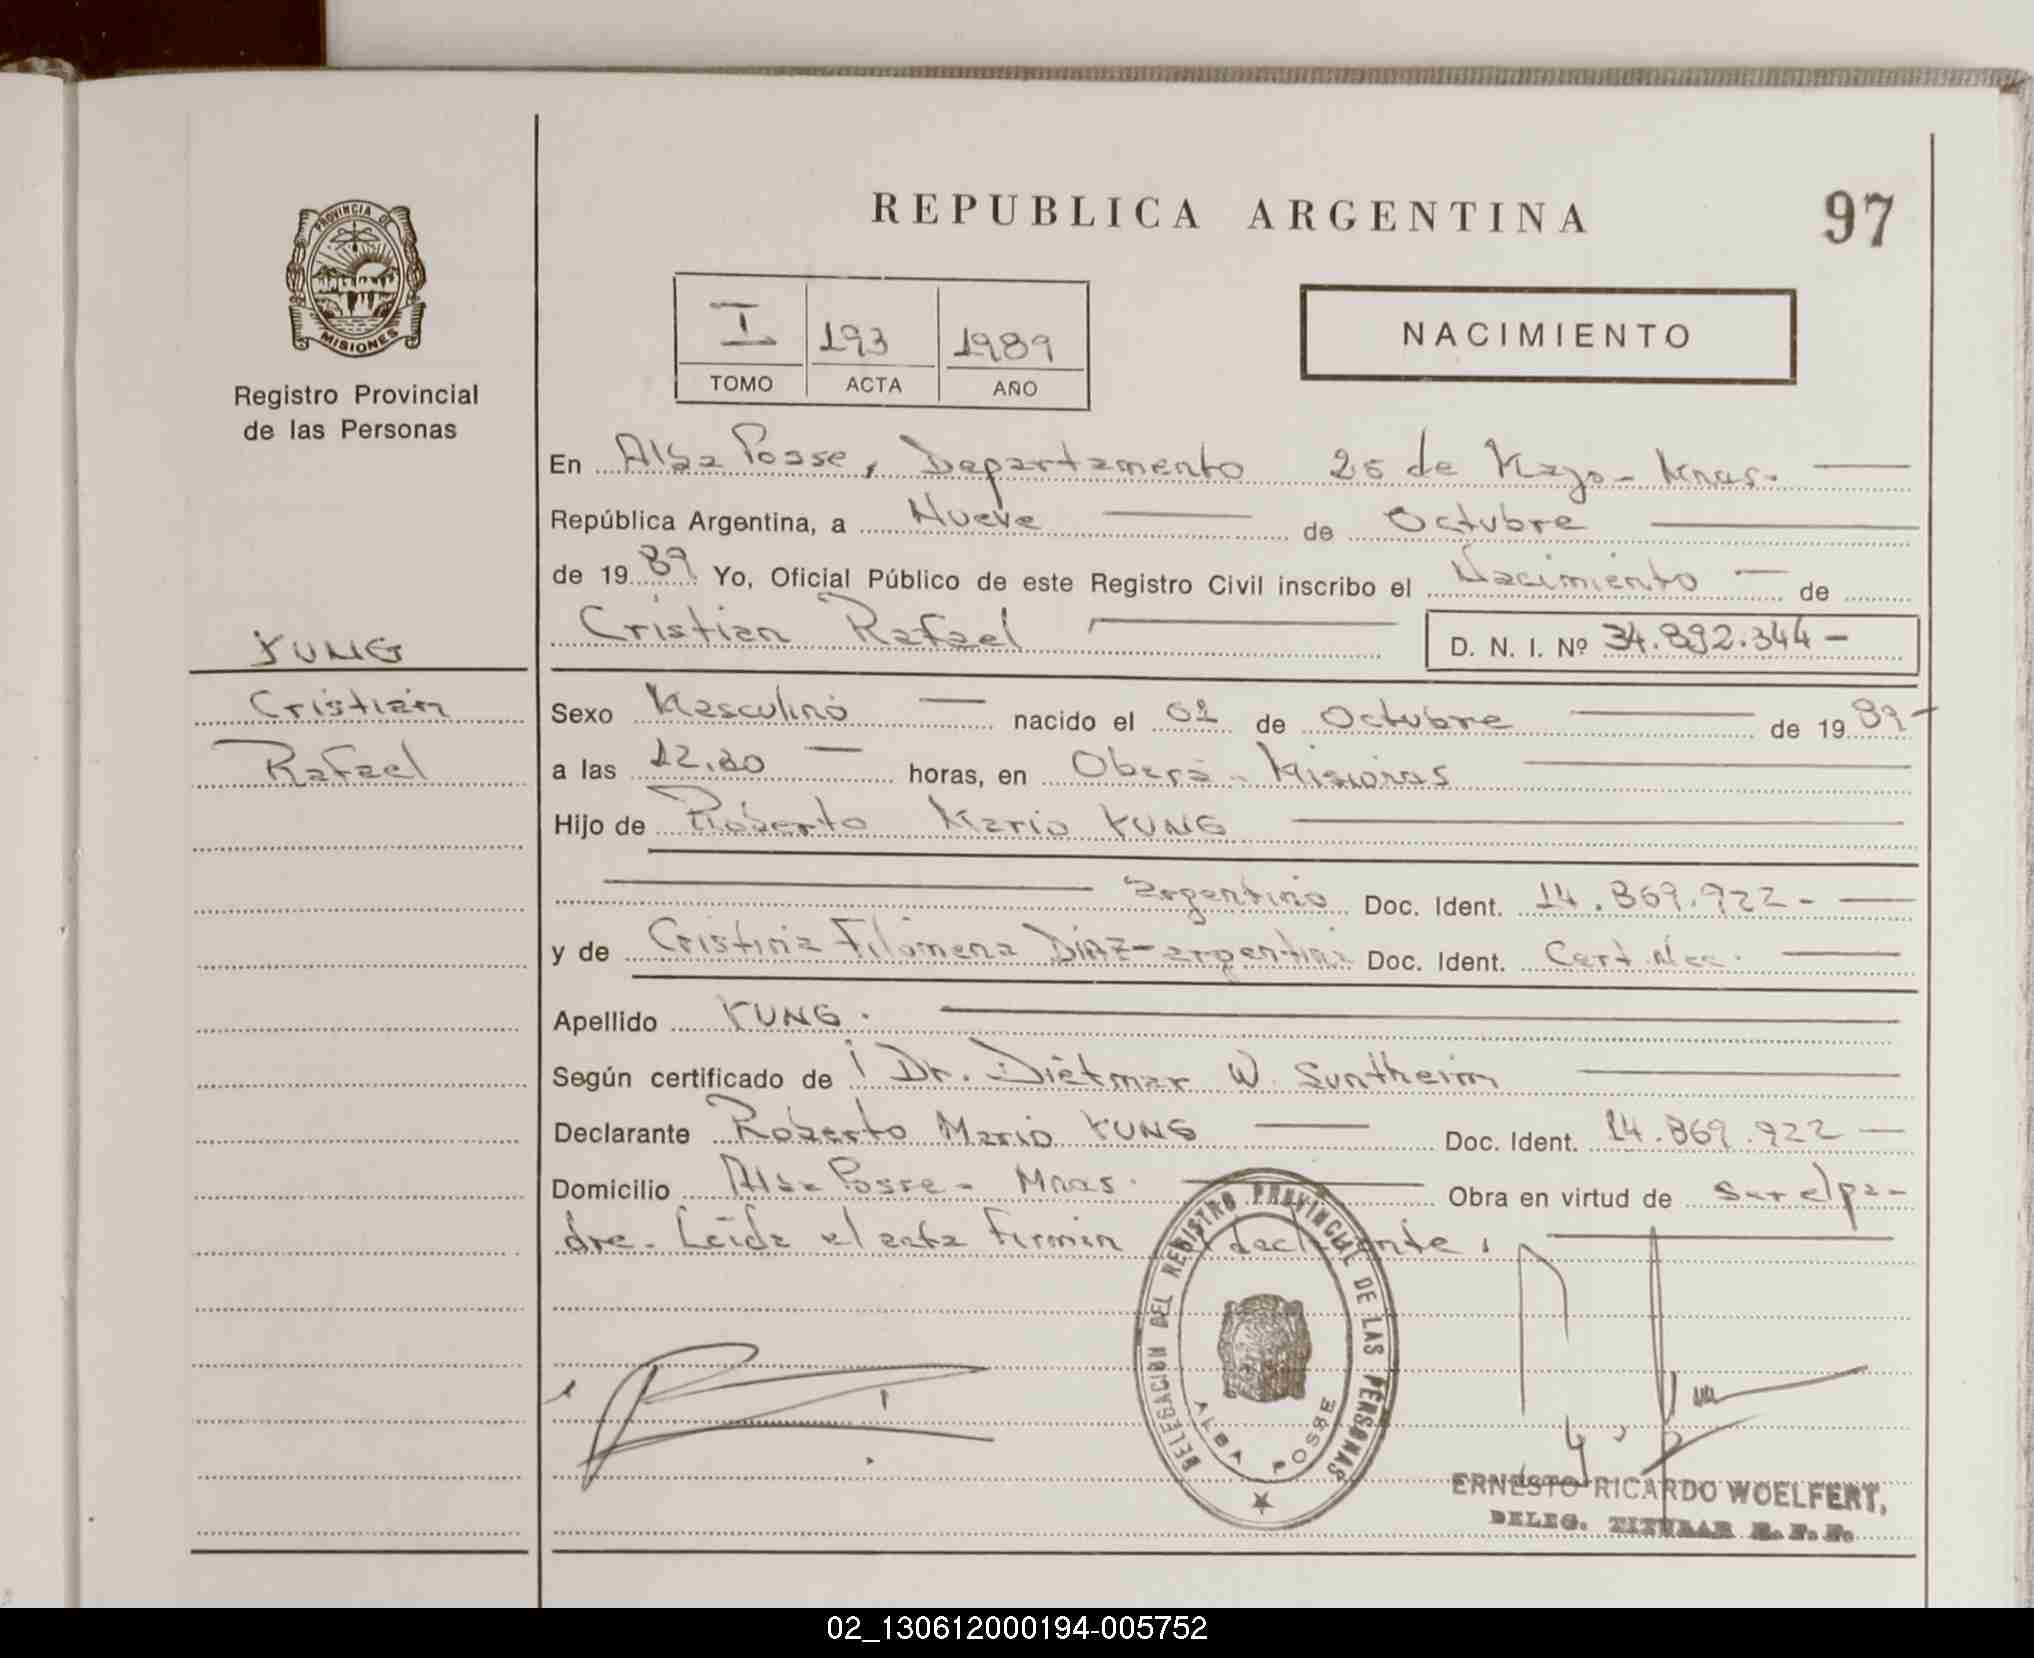 PROVINCIA DE
MISIONES
Registro Provincial
de las Personas
KUNG
Cristian
Rafael
REPUBLICA ARGENTINA
97
I 193 1989
TOMO ACTA AÑO
NACIMIENTO
En Alba Posse, Departamento 25 de Mayo - Mnes.
República Argentina, a Nueve de Octubre
de 1989 Yo, Oficial Público de este Registro Civil inscribo el Nacimiento de
Cristian Rafael D. N. I. Nº 34.892.344 -
Sexo Masculino nacido el 02 de Octubre de 1989-
a las horas, en Oberá - Misiones
Hijo de Roberto Mario KUNG
argentino Doc. Ident. 14.869.922 -
y de Cristina Filomena DIAZ - argentina Doc. Ident. Cert. Nac.
Apellido KUNG.
Según certificado de Dr. Dietmar W. Suntheim
Declarante Roberto Mario KUNG Doc. Ident. 14.869.922 -
Domicilio Alba Posse - Mnes. Obra en virtud de ser el pa-
dre - Leída el acta firman declarante,
DELEGACION DEL REGISTRO PROVINCIAL DE LAS PERSONAS
ALBA POSSE
ERNESTO RICARDO WOELFERT,
DELEG. TITULAR R. P. P.
02_130612000194-005752